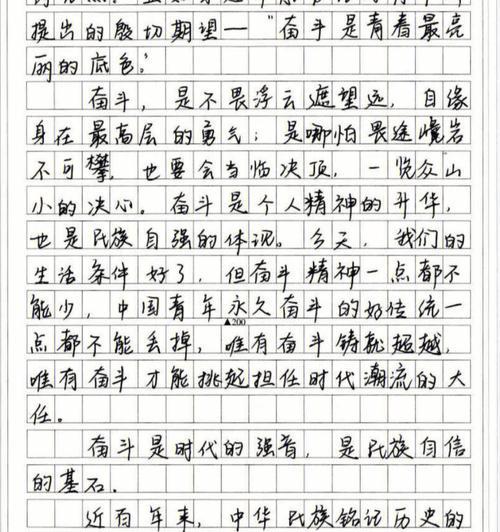 提出的殷切期望—“奋斗是青春最亮
丽的底色。”
奋斗，是不畏浮云遮望远，自缘
身在最高层的勇气；是哪怕畏途巉岩
不可攀，也要会当临决顶，一览众山
小的决心。奋斗是个人精神的升华，
也是民族自强的体现。今天，我们的
生活条件好了，但奋斗精神一点都不
能少，中国青年永久奋斗的好传统一
▲200
点都不能丢掉，唯有奋斗铸就超越，
唯有奋斗才能挑起担任时代潮流的大
任。
奋斗是时代的强音，是民族自信
的基石.
近百年来，中华民族铭记历史的